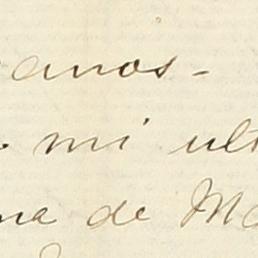 anos-
mi ult
na de Ma